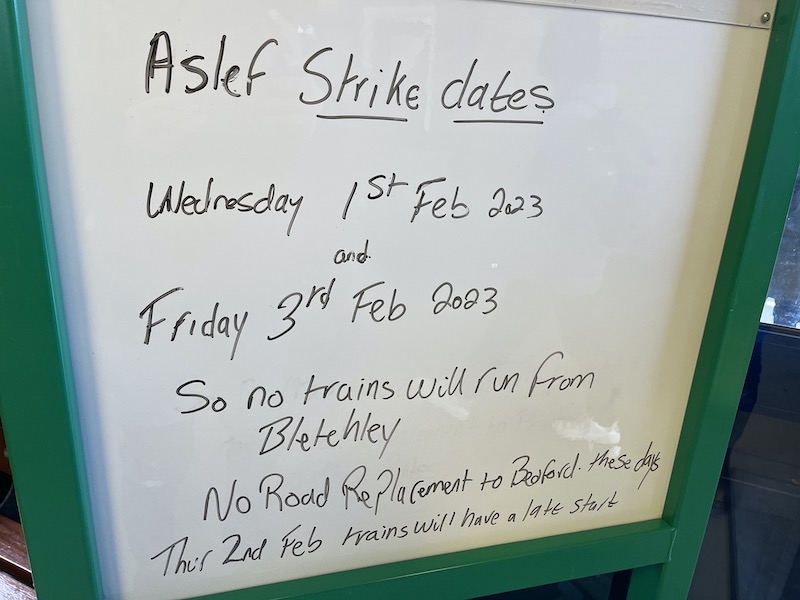 Aslef Strike dates
Wednesday 1st Feb 2023
and
Friday 3rd Feb 2023
So no trains will run from
Bletchley
No Road Replacement to Bedford. these days
Thur 2nd Feb trains will have a late start